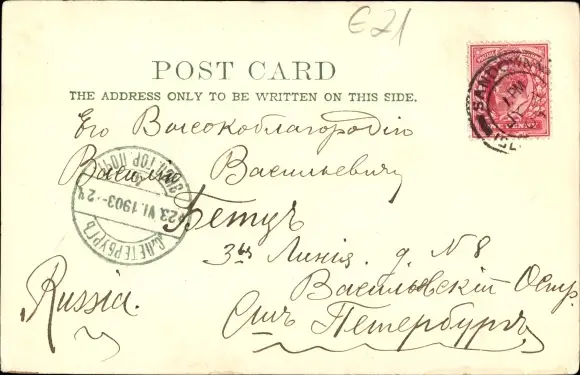 £21
POST CARD
THE ADDRESS ONLY TO BE WRITTEN ON THIS SIDE.
SANDOWN
Его Высокоблагородію
Василію Васильевичу
Бетцъ
С.ПЕТЕРБУРГЪ
23.VI.1903
ГОР. ПОЧТ
3ья Линія. д. N 8
Васильевскій Остр.
Russia.
Петербургъ